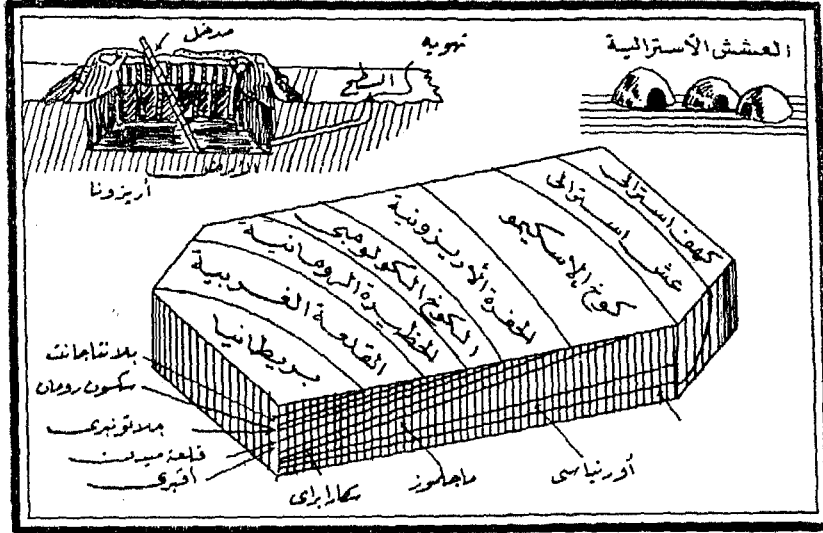 العشش الأسترالية
تهويه
مدخل
السطح
الأرض
أريزونا
كهف استرالى
عش استرالى
كوخ الاسكيمو
الحفرة الأريزونية
الكوخ الكولومبى
الحظيرة الرومانية
القلعة الغربية
بريطانيا
بلانتاجانته
سكسون رومان
جلاتونبرى
قلعة ميدن
أفبرى
سكارابراى
ماجلموز
أورنياسى